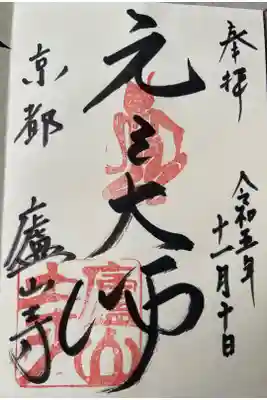 奉拝
令和五年
十一月十日
元三大師
京都
廬山寺